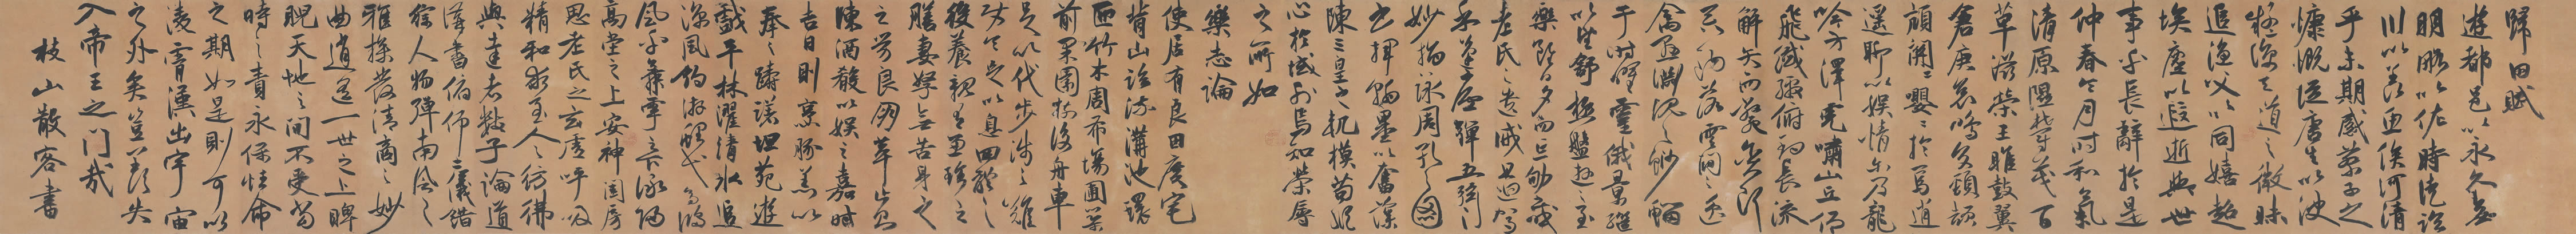 歸田賦
遊都邑以永久無
明略以佐時徒臨
川以羨魚俟河清
乎未期感蔡子之
慷慨從唐生以決
疑諒天道之微昧
追漁父以同嬉超
埃塵以遐逝與世
事乎長辭於是
仲春令月時和氣
清原隰鬱茂百
草滋榮王雎鼓翼
倉庚哀鳴交頸頡
頏關〻嚶〻於焉逍
遙聊以娛情爾乃龍
吟方澤虎嘯山丘仰
飛纖繳俯釣長流
觸矢而斃貪餌
吞鉤落雲間之逸
禽懸淵沉之魦鰡
于時曜靈俄景繼
以望舒極盤遊之至
樂雖日夕而忘劬感
老氏之遺誡且迴駕
乎蓬廬彈五弦之
妙指詠周孔之圖
書揮翰墨以奮藻
陳三皇之軌模苟縱
心於域外焉知榮辱
之所如
樂志論
使居有良田廣宅
背山臨流溝池環
匝竹木周布場圃築
前果園樹後舟車
足以代步涉之難
使令足以息四體之
役養親有兼珍之
膳妻孥無苦身之
之勞良朋萃止則
陳酒餚以娛之嘉時
吉日則烹豚羔以
奉之躊躇畦苑遊
戲平林濯清水追
涼風釣游鯉弋高鴻
風乎舞雩詠歸
高堂之上安神閨房
思老氏之玄虛呼吸
精和求至人之彷彿
與達者數子論道
講書俯仰二儀錯
綜人物彈南風之
雅操發清商之妙
曲逍遙一世之上睥
睨天地之間不受當
時之責永保性命
之期如是則可以
凌霄漢出宇宙
之外矣豈羨夫
入帝王之門哉
枝山散客書